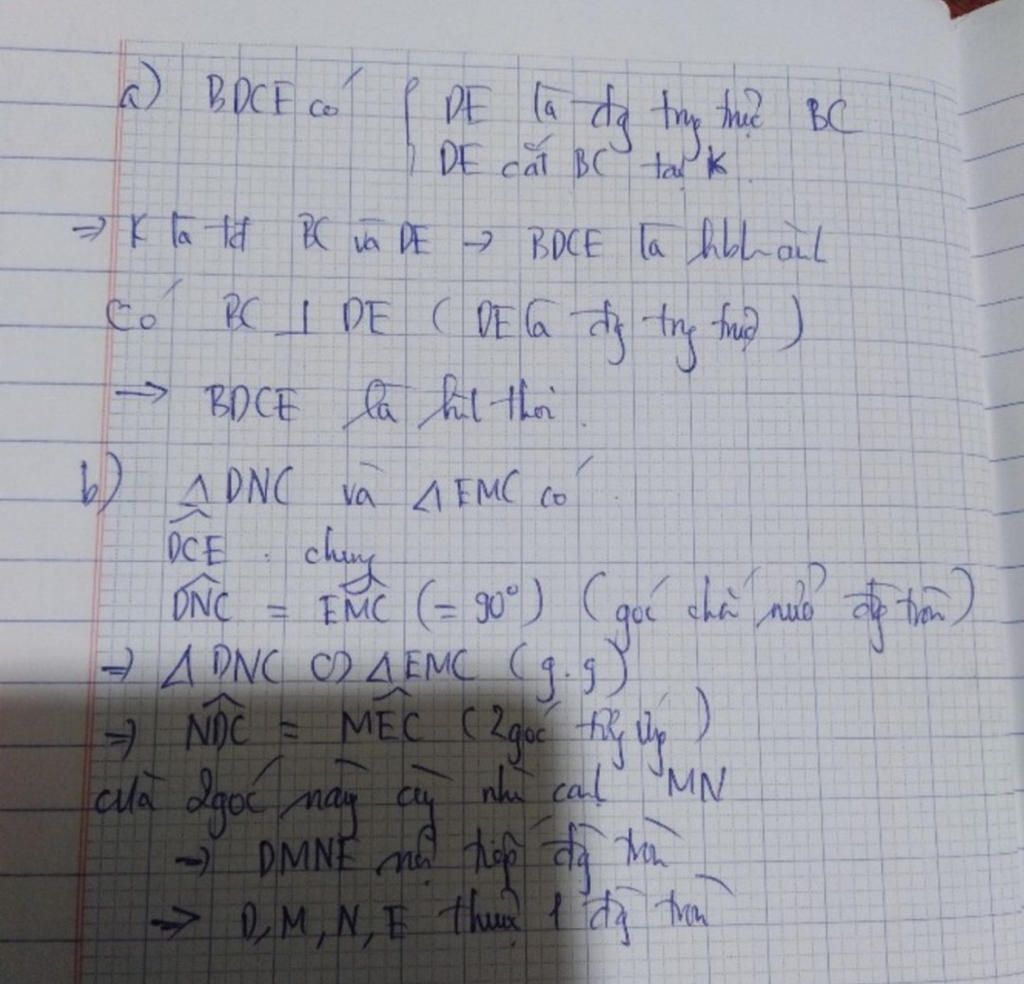 a) BDCE có { DE là đg trng trực BC
DE cắt BC tại K.
=> K là tđ BC và DE -> BDCE là hbh
Có BC ⊥ DE ( DE là đg trg trực )
-> BDCE là hìh thoi.
b) Δ DNC và Δ EMC có
DCE chung
DNC = EMC (= 90°) (góc chắn nửa đg tròn)
=> Δ DNC ∽ Δ EMC (g.g)
=> NDC = MEC (2 góc tg ứg)
mà 2 góc này cùg nhìn cạnh MN
-> DMNE nội tiếp đg tròn
-> D, M, N, E thuộc 1 đg tròn